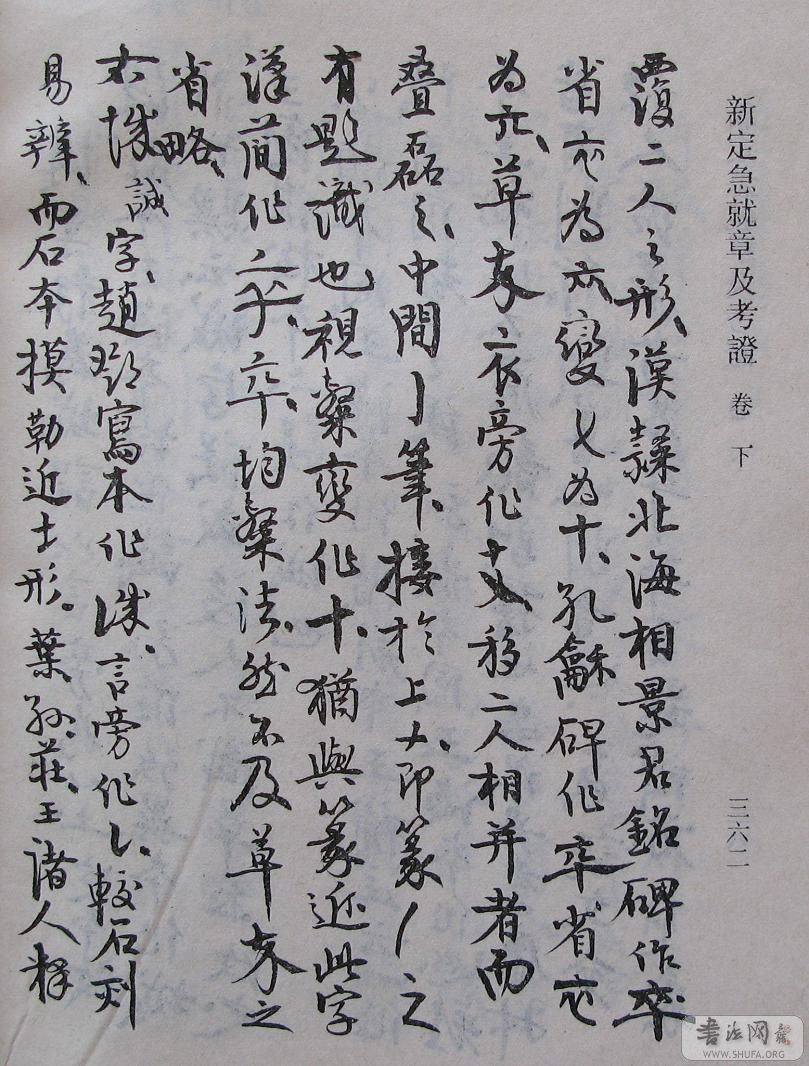 新定急就章及考證 卷下 三六二
覆二人之形、漢隸北海相景君銘碑作卒
省衣為亠、變乂為十、孔龢碑作卒省衣
為亠、草本衣旁作乂、移二人相并者而
疊磊之、中間丿筆、接於上十、即篆丿之
有題識也視隸變作十、猶與篆近此字
漢簡作卒、卒、均隸法、然不及草本之
省略、
右誠誠字、趙鄧寫本作誠、言旁作讠、較石刻
易辨、而石本摸勒近士形。葉、孫、莊、王諸人釋
書法网
WWW.SHUFA.ORG